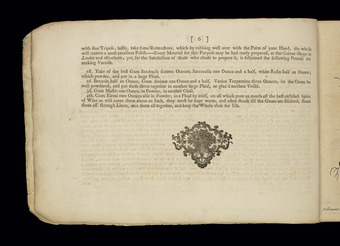 [ 6 ]
with fine Tripoli; lastly, take some Rottenstone, which by rubbing well over with the Palm of your Hand, the whole
will receive a most excellent Polish.—Every Material for this Purpose may be had ready prepared, at the Colour-Shops in
London and elsewhere; yet, for the Satisfaction of those who chuse to prepare it, is subjoined the following Process for
making Varnish.
1st. Take of the best Gum Sandrack sixteen Ounces, Sarcocolla one Ounce and a half, white Rosin half an Ounce;
which powder, and put in a large Phial.
2d. Benzoin half an Ounce, Gum Animae one Ounce and a half, Venice Turpentine three Ounces, let the Gums be
well powdered, and put these three together in another large Phial, or glaz'd earthen Vessel.
3d. Gum Mastic one Ounce, in Powder, in another Glass.
4th. Gum Elemi two Ounces also in Powder, in a Phial by itself, on all which pour as much of the best rectified Spirit
of Wine as will cover them about an Inch, they must be kept warm, and often shook till the Gums are dissolved, then
them off through Linen, mix them all together, and keep the Whole close for Use.